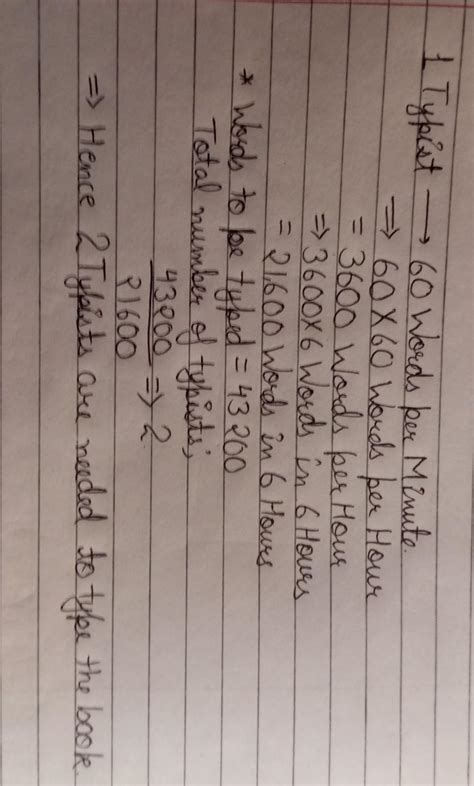 1 Typist → 60 Words per Minute.
⇒ 60 X 60 Words per Hour
= 3600 Words per Hour
⇒ 3600X6 Words in 6 Hours
= 21600 Words in 6 Hours
* Words to be typed = 43200
Total number of typists;
43200 ⇒ 2
21600
⇒ Hence 2 Typists are needed to type the book.